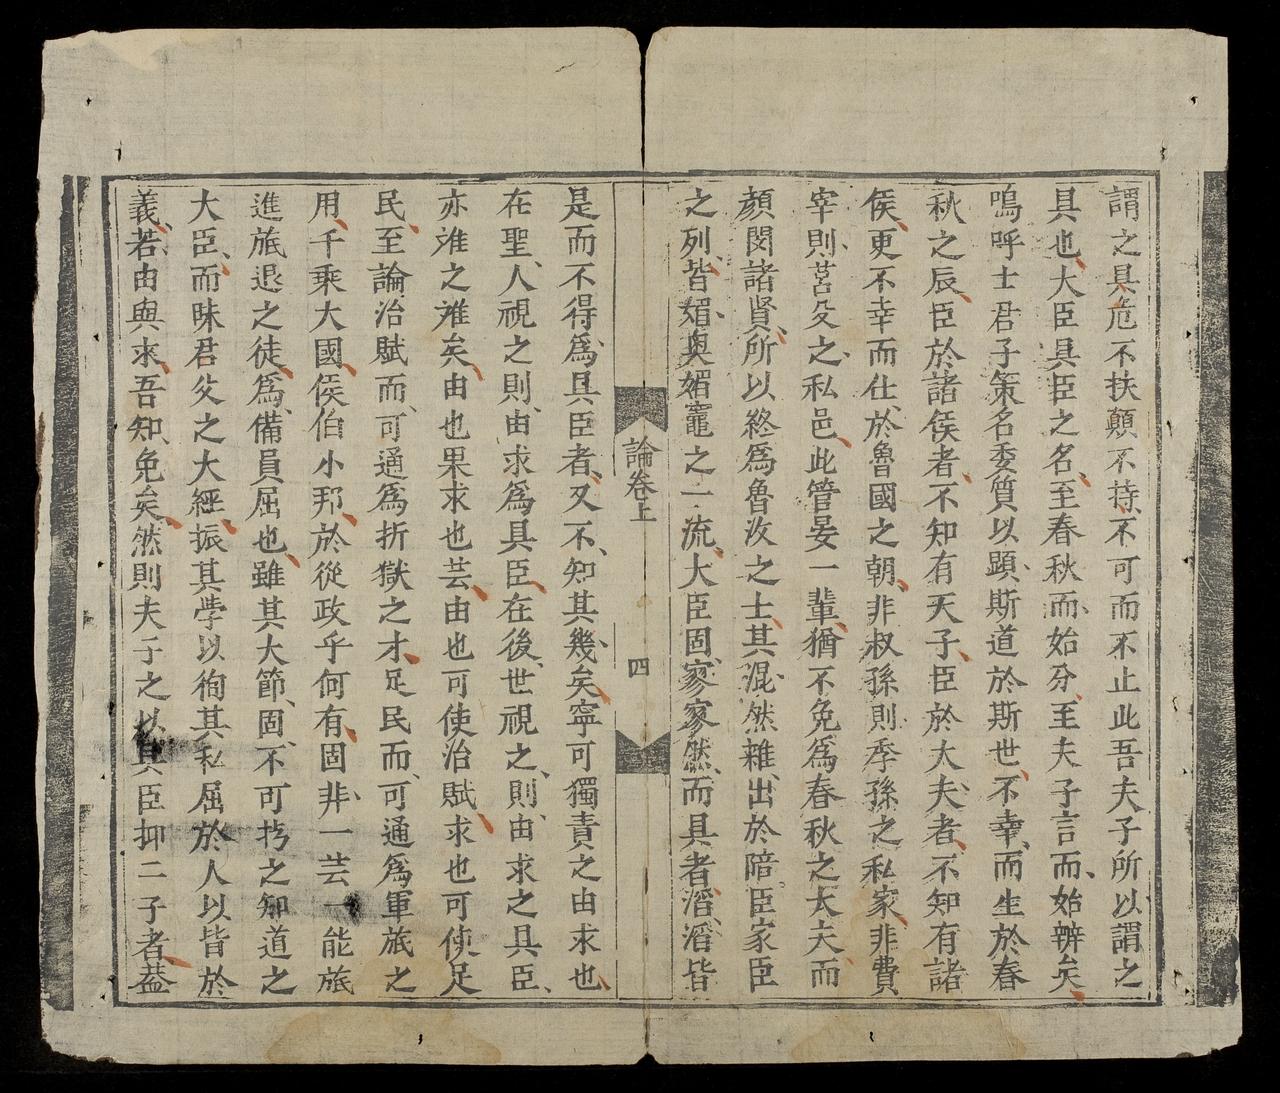 謂之具危不扶顛不持不可而不止此吾夫子所以謂之
具也大臣具臣之名至春秋而始分至夫子言而始辨矣
嗚呼士君子策名委質以顕斯道於斯世不幸而生於春
秋之辰臣於諸侯者不知有天子臣於大夫者不知有諸
侯更不幸而仕於魯國之朝非叔孫則季孫之私家非費
宰則莒父之私邑此管晏一輩猶不免爲春秋之大夫而
顔閔諸賢所以終爲魯汶之士其混然雜出於陪臣家臣
之列皆媚奥媚竈之一流大臣固寥寥然而具者滔滔皆
論卷上
四
是而不得爲具臣者又不知其幾矣寧可獨責之由求也
在聖人視之則由求爲具臣在後世視之則由求之具臣
亦难之难矣由也果求也芸由也可使治賦求也可使足
民至論治賦而可通爲折獄之才足民而可通爲軍旅之
用千乘大國侯伯小邦於從政乎何有固非一芸一能旅
進旅退之徒爲備員屈也雖其大節固不可拷之知道之
大臣而昧君父之大經振其学以徇其私屈於人以皆於
義若由與求吾知免矣然則夫子之以具臣抑二子者葢